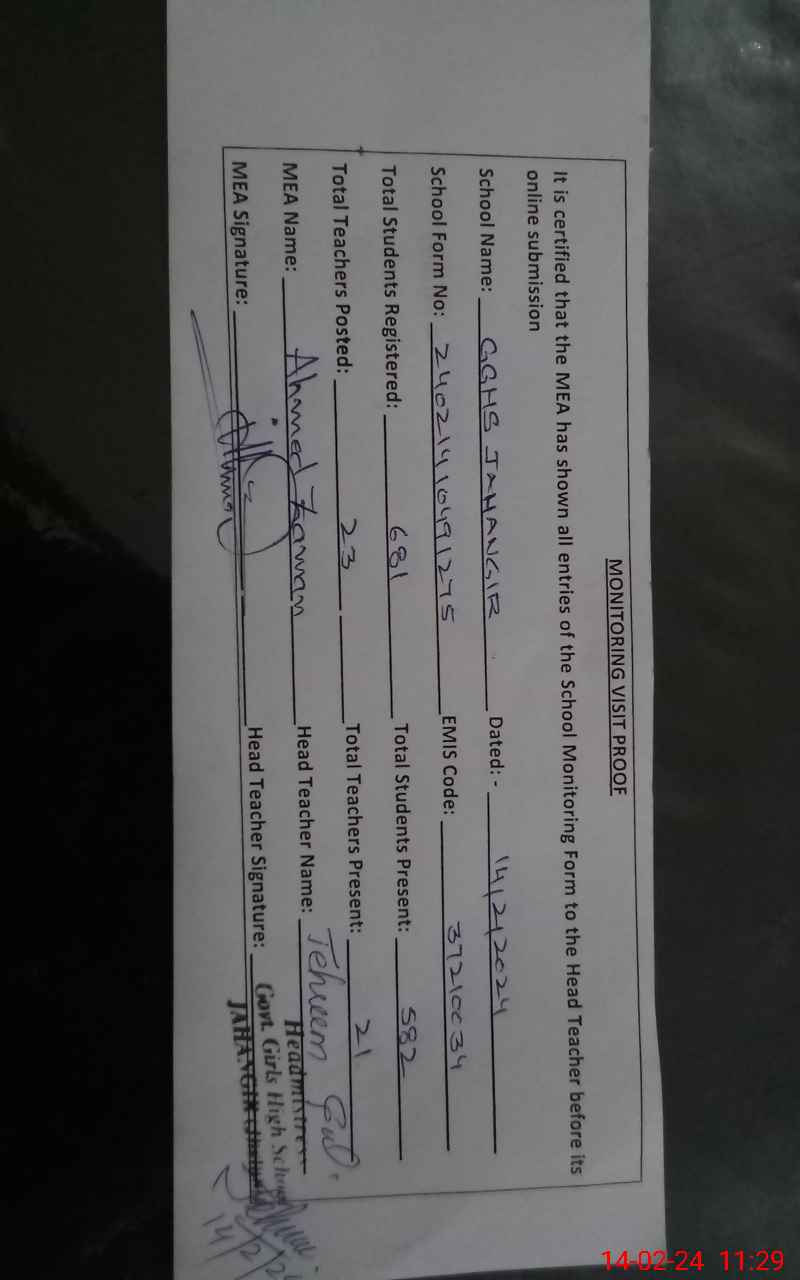 MONITORING VISIT PROOF
It is certified that the MEA has shown all entries of the School Monitoring Form to the Head Teacher before its
online submission
School Name: GGHS JAHANGIR Dated: - 14/2/2024
School Form No: 24021410491275 EMIS Code: 37210034
Total Students Registered: 681 Total Students Present: 582
Total Teachers Posted: 23 Total Teachers Present: 21
MEA Name: Ahmed Zaman Head Teacher Name: Tehreem Gul.
MEA Signature: Head Teacher Signature:
Headmistress
Govt. Girls High School
JAHANGIR
14/2/24
14-02-24 11:29